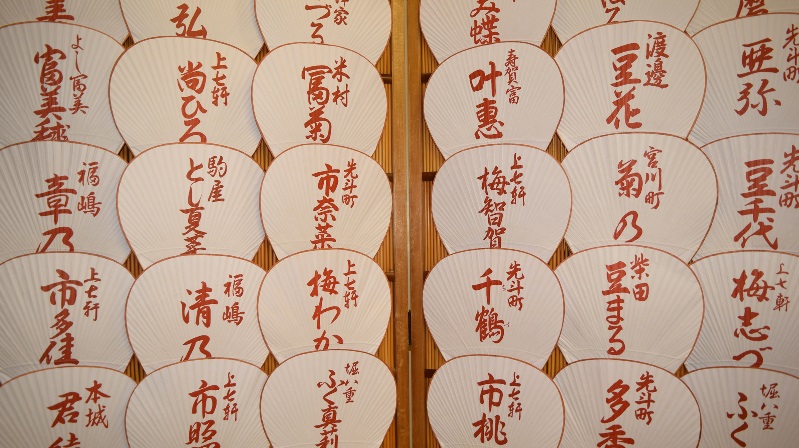 弘
よし冨美
富美毬
上七軒
尚ひろ
米村
冨菊
福嶋
章乃
駒屋
とし夏菜
先斗町
市奈菜
上七軒
市多佳
福嶋
清乃
上七軒
梅わか
本城
君
上七軒
市照
堀八重
ふく真莉
み蝶
寿賀富
叶惠
渡邊
豆花
先斗町
亜弥
上七軒
梅智賀
宮川町
菊乃
先斗町
豆千代
先斗町
千鶴
柴田
豆まる
上七軒
梅志づ
上七軒
市桃
先斗町
多香
堀八重
ふく